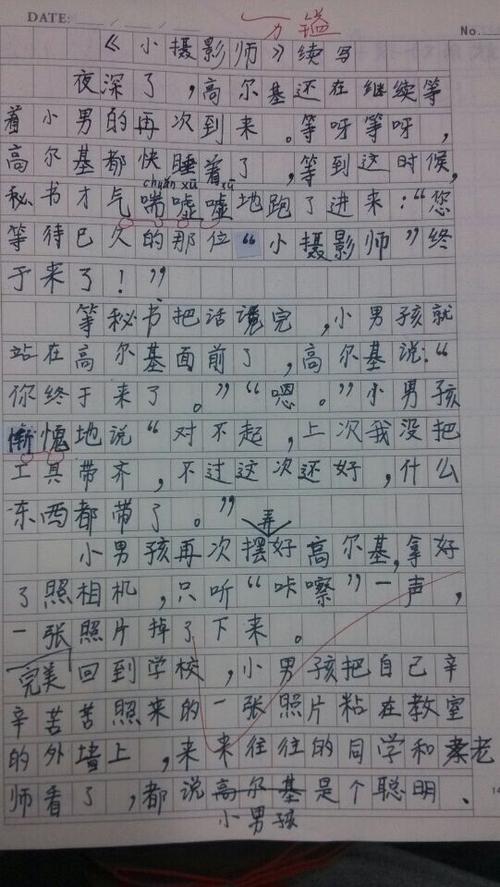 DATE:
No.
《小摄影师》续写
夜深了，高尔基还在继续等
着小男的再次到来。等呀等呀，
高尔基都快睡着了，等到这时候，
chuǎn xū xū
秘书才气喘嘘嘘地跑了进来：“您
等待已久的那位“小摄影师”终
于来了！”
等秘书把话说完，小男孩就
站在高尔基面前了，高尔基说：“
你终于来了。”“嗯。”小男孩
惭愧地说“对不起，上次我没把
工具带齐，不过这次还好，什么
东西都带了。”
弄
小男孩再次摆好高尔基，拿好
了照相机，只听“咔嚓”一声，
一张照片掉了下来。
完美
回到学校，小男孩把自己辛
辛苦苦照来的一张照片粘在教室
的外墙上，来来往往的同学和老
师看了，都说高尔基是个聪明、
小男孩